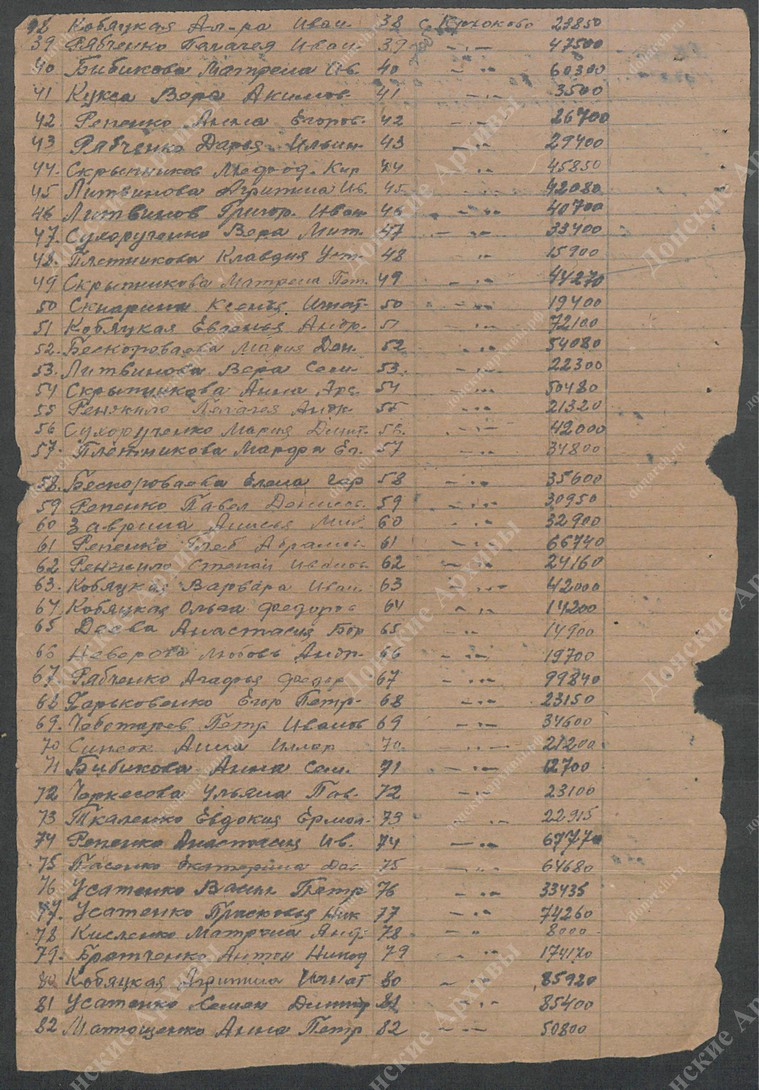 38 Кобяцкая Ал-ра Иван. 38 с. Крюково 29850
39. Рябченко Пелагея Иван. 39 -"- 47500
40 Бибикова Матрена Ив. 40 -"- 60300
41 Кукса Вера Акимов. 41 -"- 3500
42 Репенко Анна Егоров. 42 -"- 26700
43 Рябченко Дарья Ильин. 43 -"- 29400
44. Скрыпников Кир 44 -"- 45850
45 Литвинова Ив. 45 -"- 42080
46 Литвинов Григор. Иван 46 -"- 40700
47. Сухорученко Вера Мит. 47 -"- 33400
48. Плетникова Клавдия Уст. 48 -"- 15900
49 Скрыпникова Матрена Пет. 49 -"- 44270
50 Ксенья Игнат. 50 -"- 19400
51 Кобяцкая Евгенья Андр. 51 -"- 72100
52. Бескороваева Мария Дан. 52 -"- 54080
53. Литвинова Вера Сем. 53 -"- 22300
54 Скрыпникова Анна 54 -"- 50480
55 Пелагея Андр. 55 -"- 21320
56 Сухорученко Мария Дмит. 56 -"- 42000
57. Плетникова Марфа Ег. 57 -"- 34800
58. Бескороваева Елена 58 -"- 35600
59 Репенко Павел Денисов. 59 -"- 30950
60 Заврина Мих. 60 -"- 32900
61 Репенко Глеб Абрамов. 61 -"- 66740
62 Степан Иванов. 62 -"- 24160
63. Кобяцкая Варвара Иван. 63 -"- 42000
64 Кобяцкая Ольга Федоров 64 -"- 14200
65 Анастасия 65 -"- 14900
66 Любовь Андр. 66 -"- 19700
67. Рябченко Агафья Федор 67 -"- 99840
68 Харьковенко Егор Петр. 68 -"- 23150
69. Чеботарев Петр Иванов 69 -"- 34600
70 Анна 70 -"- 21200
71 Бибикова Анна Сем. 71 -"- 12700
72 Черкесова Ульяна Пав. 72 -"- 23100
73 Ткаленко Евдокия Ермол. 73 -"- 22915
74 Репенко Анастасия Ив. 74 -"- 67770
75 Пасенко Екатерина 75 -"- 64680
76 Усатенко Васил Петр 76 -"- 33435
77. Усатенко Прасковья Ник 77 -"- 74260
78 Кисленко Матрена 78 -" 8000
79. Братченко Антон 79 -"- 174170
80 Кобяцкая Игнат 80 -"- 85920
81 Усатенко Семен Дмитр 81 -"- 85400
82 Матющенко Анна Петр 82 -"- 50800
Донские Архивы
donarch.ru